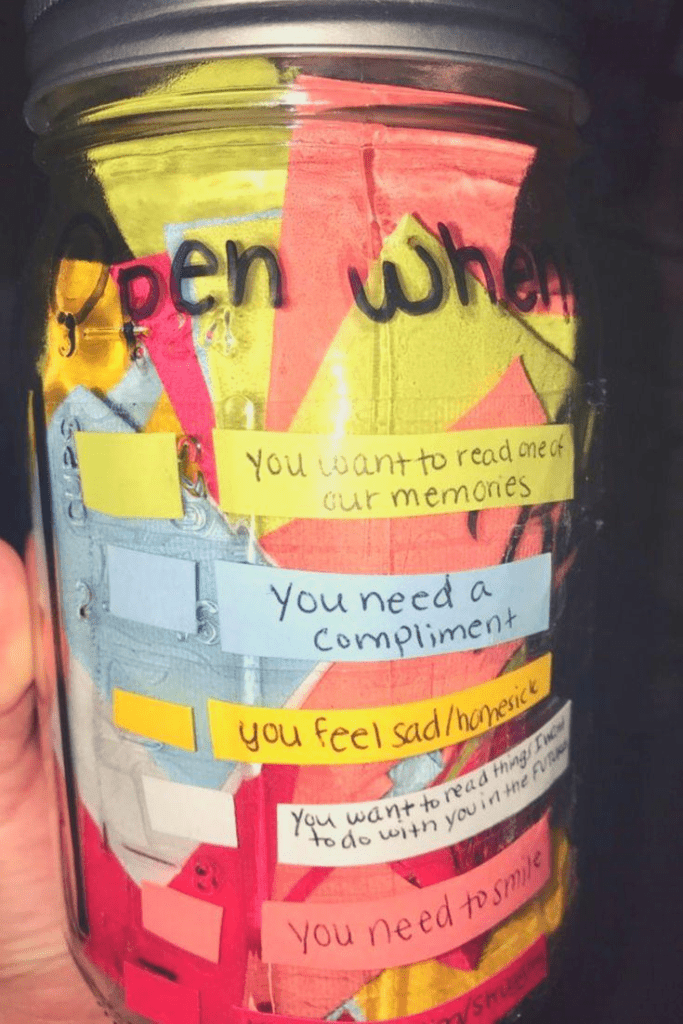 Open when
CUPS
you want to read one of
our memories
2
you need a
compliment
you feel sad/homesick
you want to read things I want
to do with you in the FUTURE
you need to smile